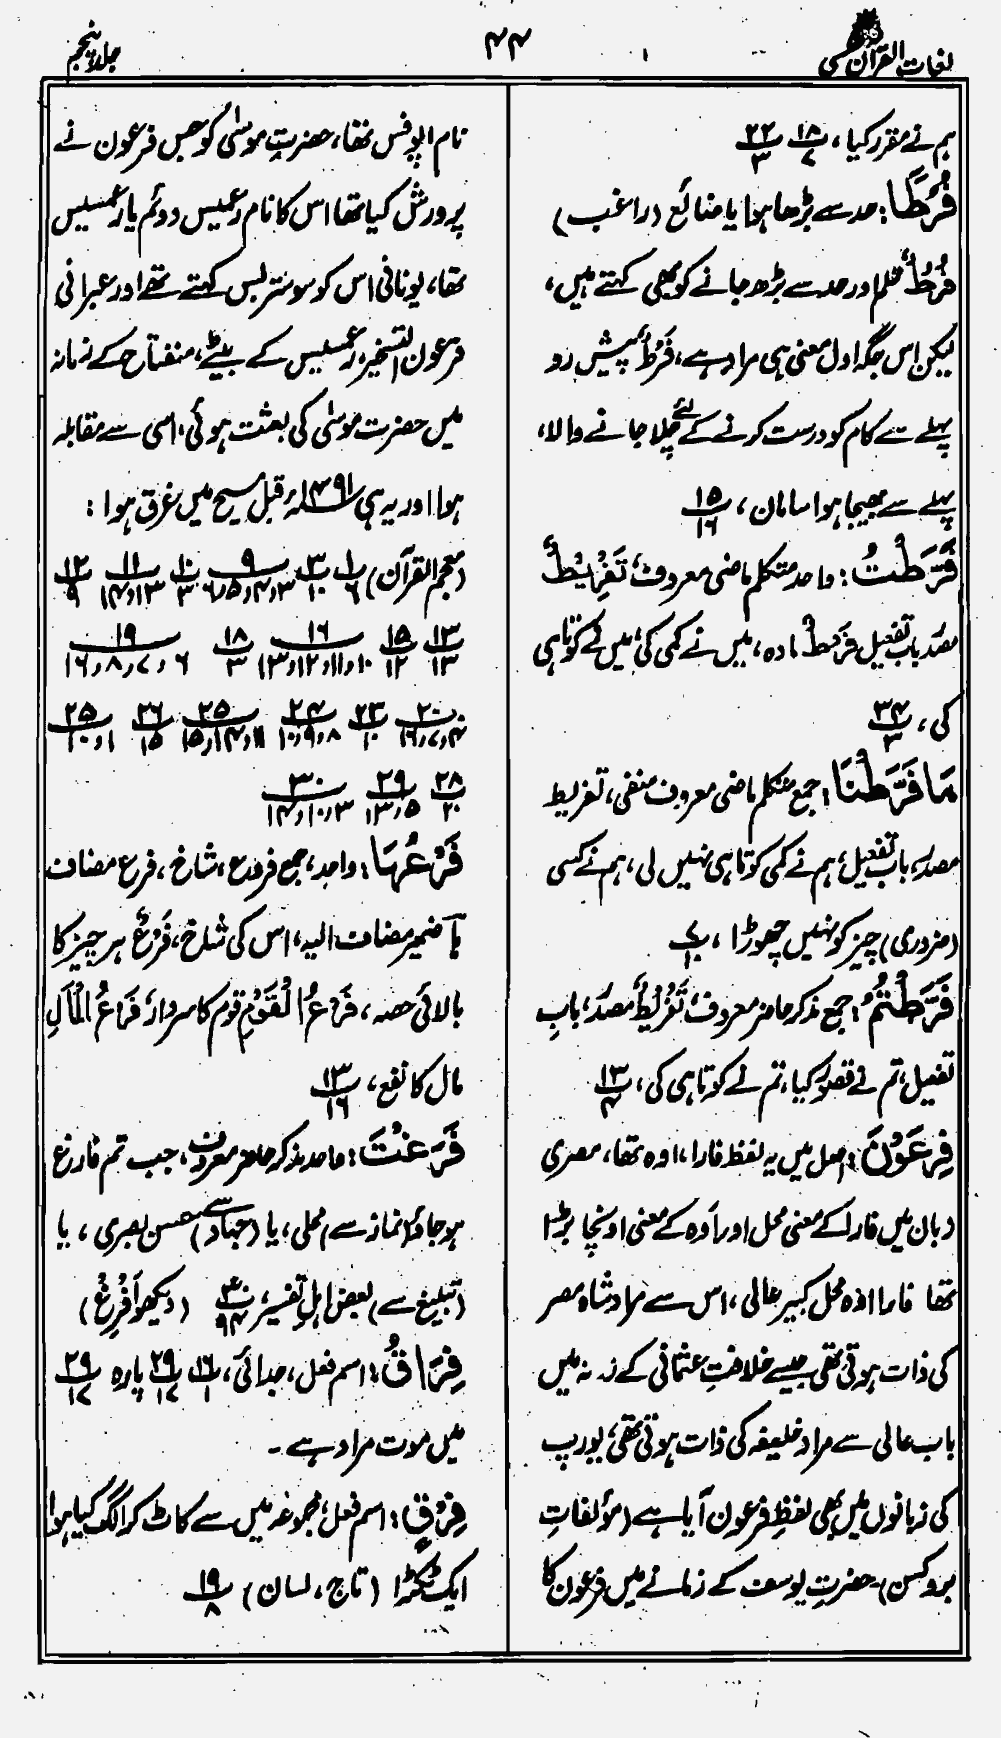 لغات القرآن
۴۴
جلد پنجم
ہم نے مقرر کیا، ۱۸/۷ ۲۲/۳
فُرُطًا: حد سے بڑھا ہوا یا ضائع (راغب)
فُرُطٌ ظلم اور حد سے بڑھ جانے کو بھی کہتے ہیں،
لیکن اس جگہ اول معنی ہی مراد ہے، فَرَطٌ پیش رو
پہلے سے کام کو درست کرنے کے لئے چلا جانے والا،
پہلے سے بھیجا ہوا سامان، ۱۵/۱۶
فَرَّطْتُ: واحد متکلم ماضی معروف، تَفْرِیْطٌ
مصدر باب تفعیل فرط مادہ، میں نے کمی کی، میں نے کوتاہی
کی، ۲۴/۳
مَا فَرَّطْنَا: جمع متکلم ماضی معروف منفی، تفریط
مصدر، باب تفعیل، ہم نے کمی کوتاہی نہیں کی، ہم نے کسی
(ضروری) چیز کو نہیں چھوڑا، ۷/۱۰
فَرَّطْتُمْ: جمع مذکر حاضر معروف، تَفْرِیْطٌ مصدر، باب
تفعیل، تم نے قصور کیا، تم نے کوتاہی کی، ۱۳/۴
فِرْعَوْنَ: اصل میں یہ لفظ فارا، اوہ تھا، مصری
زبان میں فارا کے معنی محل اور اوہ کے معنی اونچا بڑا
تھا فارا اوہ محل کبیر عالی، اس سے مراد شاہ مصر
کی ذات ہوتی تھی جیسے خلافتِ عثمانی کے زمانہ میں
باب عالی سے مراد خلیفہ کی ذات ہوتی تھی، یورپ
کی زبانوں میں بھی لفظ فرعون آیا ہے (مؤلفاتِ
بروکسن)۔ حضرتِ یوسف کے زمانے میں فرعون کا
نام اپوفس تھا، حضرتِ موسیٰ کو جس فرعون نے
پرورش کیا تھا اس کا نام رعمیس دوئم یا رعمسیس
تھا، یونانی اس کو سوسترلیس کہتے تھے اور عبرانی
فرعون التسخیر، رعمسیس کے بیٹے، منفتاح کے زمانہ
میں حضرت موسیٰ کی بعثت ہوئی، اسی سے مقابلہ
ہوا اور یہ ہی ۱۴۹۱ء قبل مسیح میں غرق ہوا:
(معجم القرآن) ۱/۶ ۳/۱۰ ۹/۳،۴،۵،۶ ۱۰/۳ ۱۱/۱۳،۱۴ ۱۲/۹
۱۳/۱۳ ۱۵/۱۲ ۱۶/۱۰،۱۱،۱۲،۱۳ ۱۸/۳ ۱۹/۶،۷،۸،۱۶
۲۰/۴،۷،۱۶ ۲۳/۱۰ ۲۴/۸،۹،۱۰ ۲۵/۱۱،۱۴،۱۵ ۲۶/۱۵ ۲۵/۱،۱۰
۲۸/۲۰ ۲۹/۵،۱۳ ۳۰/۳،۱۰،۱۴
فَرْعُهَا: واحد، جمع فروع، شاخ، فرع مضاف
ہا ضمیر مضاف الیہ، اس کی شاخ، فَرْعٌ ہر چیز کا
بالائی حصہ، فَرْعُ الْقَوْمِ قوم کا سردار، فَرَاعُ الْمَالِ
مال کا نفع، ۱۳/۱۶
فَرَغْتَ: واحد مذکر حاضر معروف، جب تم فارغ
ہو جاؤ نماز سے محلی، یا (جہاد سے) حسن بصری، یا
(تبلیغ سے) بعض اہل تفسیر، ۳۰/۹۴ (دیکھو اُفْرِغْ)
فِرَاقُ: اسم فعل، جدائی، ۱۶/۱ ۲۹/۱۷ پارہ ۲۹/۱۷
میں موت مراد ہے۔
فِرْقٍ: اسم فعل، مجموعہ میں سے کاٹ کر الگ کیا ہوا
ایک ٹکڑا (تاج، لسان) ۱۹/۸